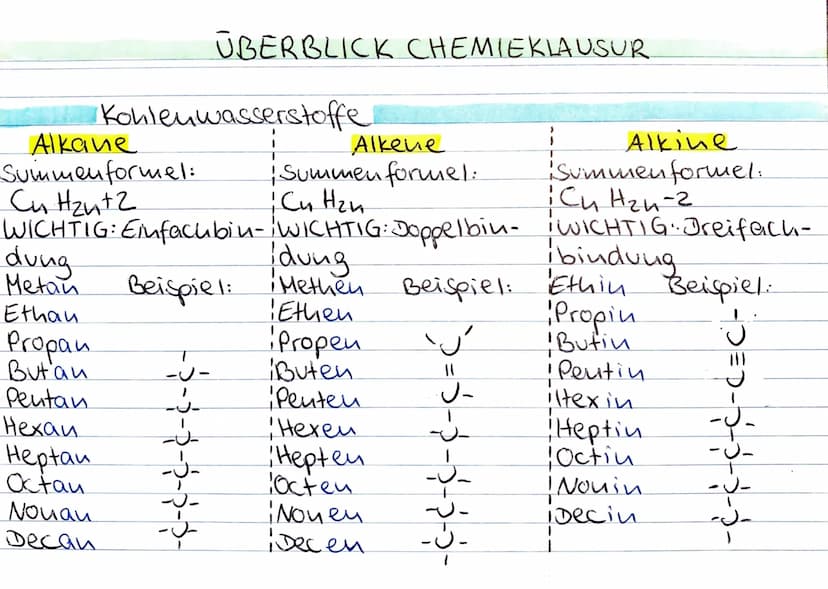 ÜBERBLICK CHEMIEKLAUSUR
Kohlenwasserstoffe
Alkane
Summenformel:
Cn H2n+2
WICHTIG: Einfachbin-
dung
Metan Beispiel:
Ethan
Propan
Butan
Pentan
Hexan
Heptan
Octan
Nonan
Decan
Alkene
Summenformel:
Cn H2n
WICHTIG: Doppelbin-
dung
Methen Beispiel:
Ethen
Propen
Buten
Penten
Hexen
Hepten
Octen
Nonen
Decen
Alkine
Summenformel:
Cn H2n-2
WICHTIG: Dreifach-
bindung
Ethin Beispiel:
Propin
Butin
Pentin
Hexin
Heptin
Octin
Nonin
Decin